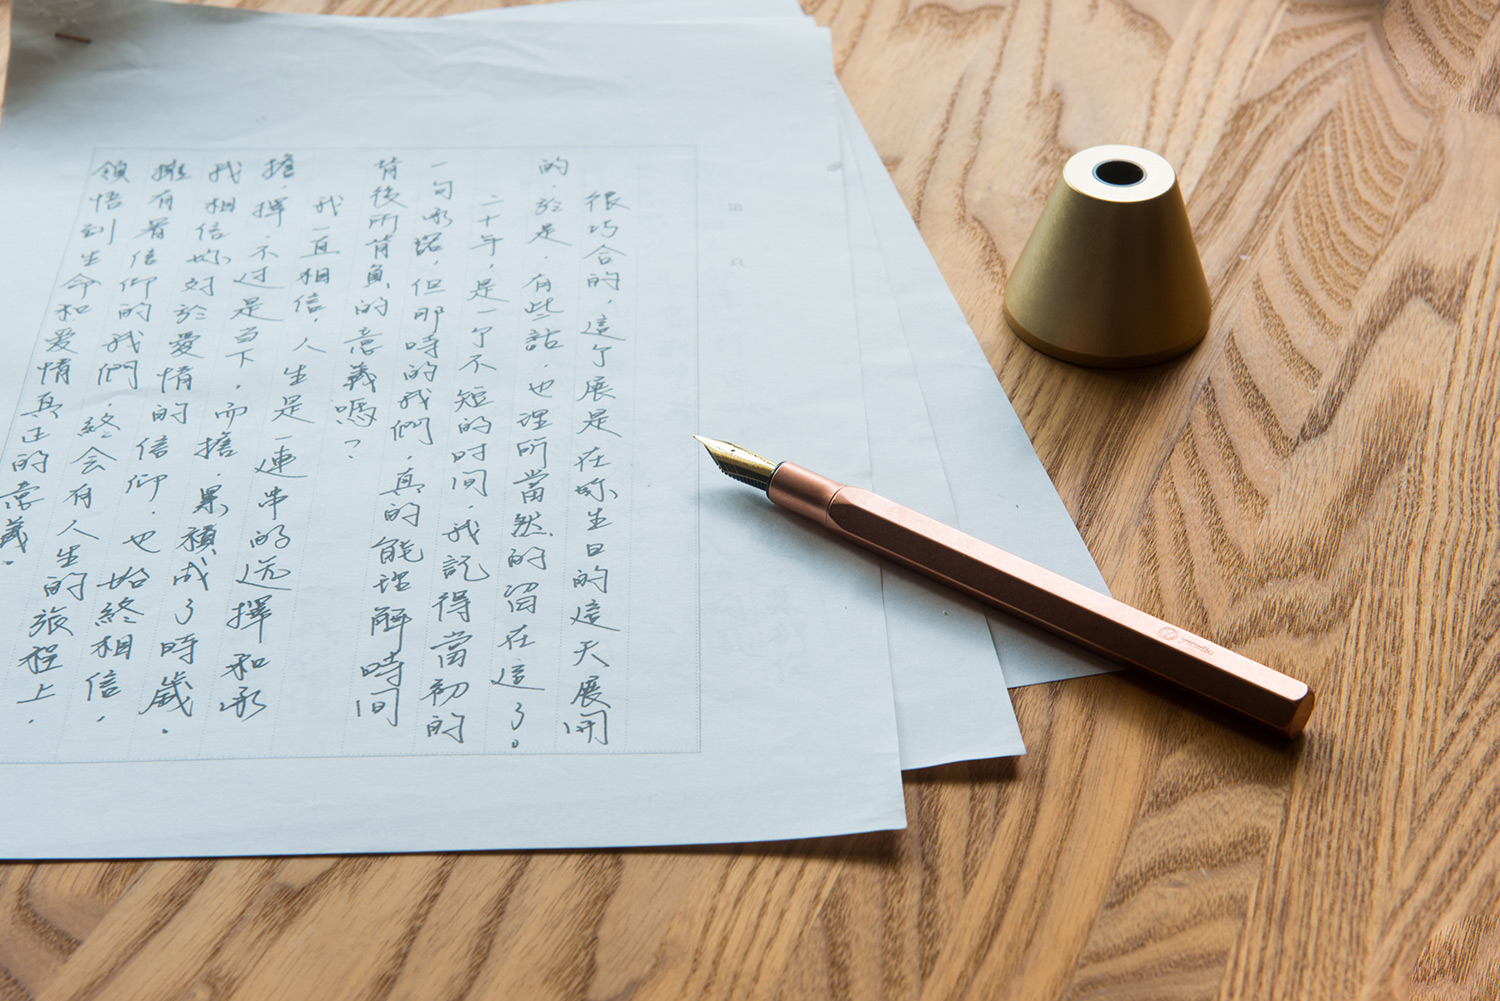 很巧合的，這个展是在妳生日的這天展開
的，於是，有些話，也理所當然的留在這了。
二十年，是一个不短的时间，我記得當初的
一句承諾，但那時的我們，真的能理解時間
背後所背負的意義嗎？
我一直相信，人生是一連串的选擇和承
擔，擇，不过是当下，而擔，累積成了時歲。
我相信妳对於愛情的信仰，也始終相信，
擁有着信仰的我們，終会有人生的旅程上，
領悟到生命和爱情真正的意義。
ystudio